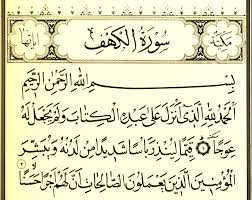 مكية سُورَةُ الكَهْفِ آياتها
بِسْمِ اللَّهِ الرَّحْمَنِ الرَّحِيمِ
الْحَمْدُ لِلَّهِ الَّذِي أَنْزَلَ عَلَى عَبْدِهِ الْكِتَابَ وَلَمْ يَجْعَلْ لَهُ
عِوَجًا قَيِّمًا لِيُنْذِرَ بَأْسًا شَدِيدًا مِنْ لَدُنْهُ وَيُبَشِّرَ
الْمُؤْمِنِينَ الَّذِينَ يَعْمَلُونَ الصَّالِحَاتِ أَنَّ لَهُمْ أَجْرًا حَسَنًا